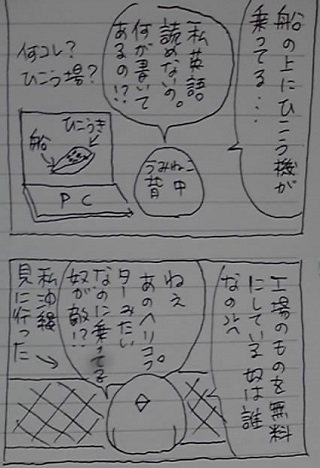 船の上にひこう機が
乗ってる…
私英語
読めないの。
何が書いて
あるの!?
何コレ?
ひこう場?
ひこうき
船
PC
うみねこ
背中
工場のものを無料
にしている奴は誰
なのルへ
ねえ
あのヘリコプ
ターみたい
なのに乗ってる
奴が敵!?
私沖縄
見に行った→